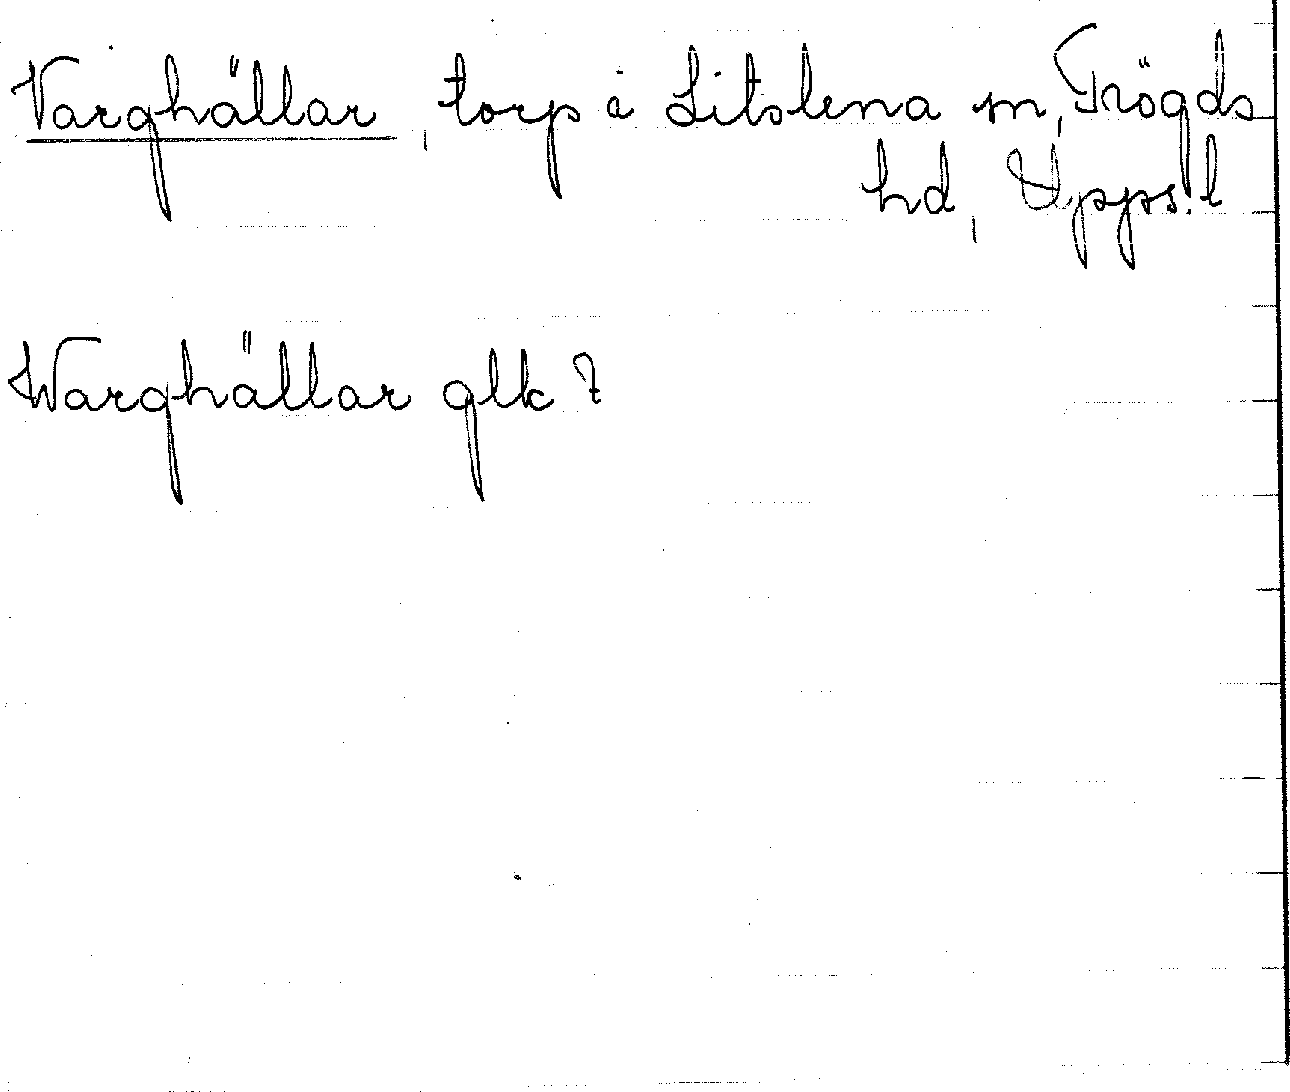 Varghällar, torp i Litslena sn, Trögds
hd, Upps. l
Warghällar glk ?